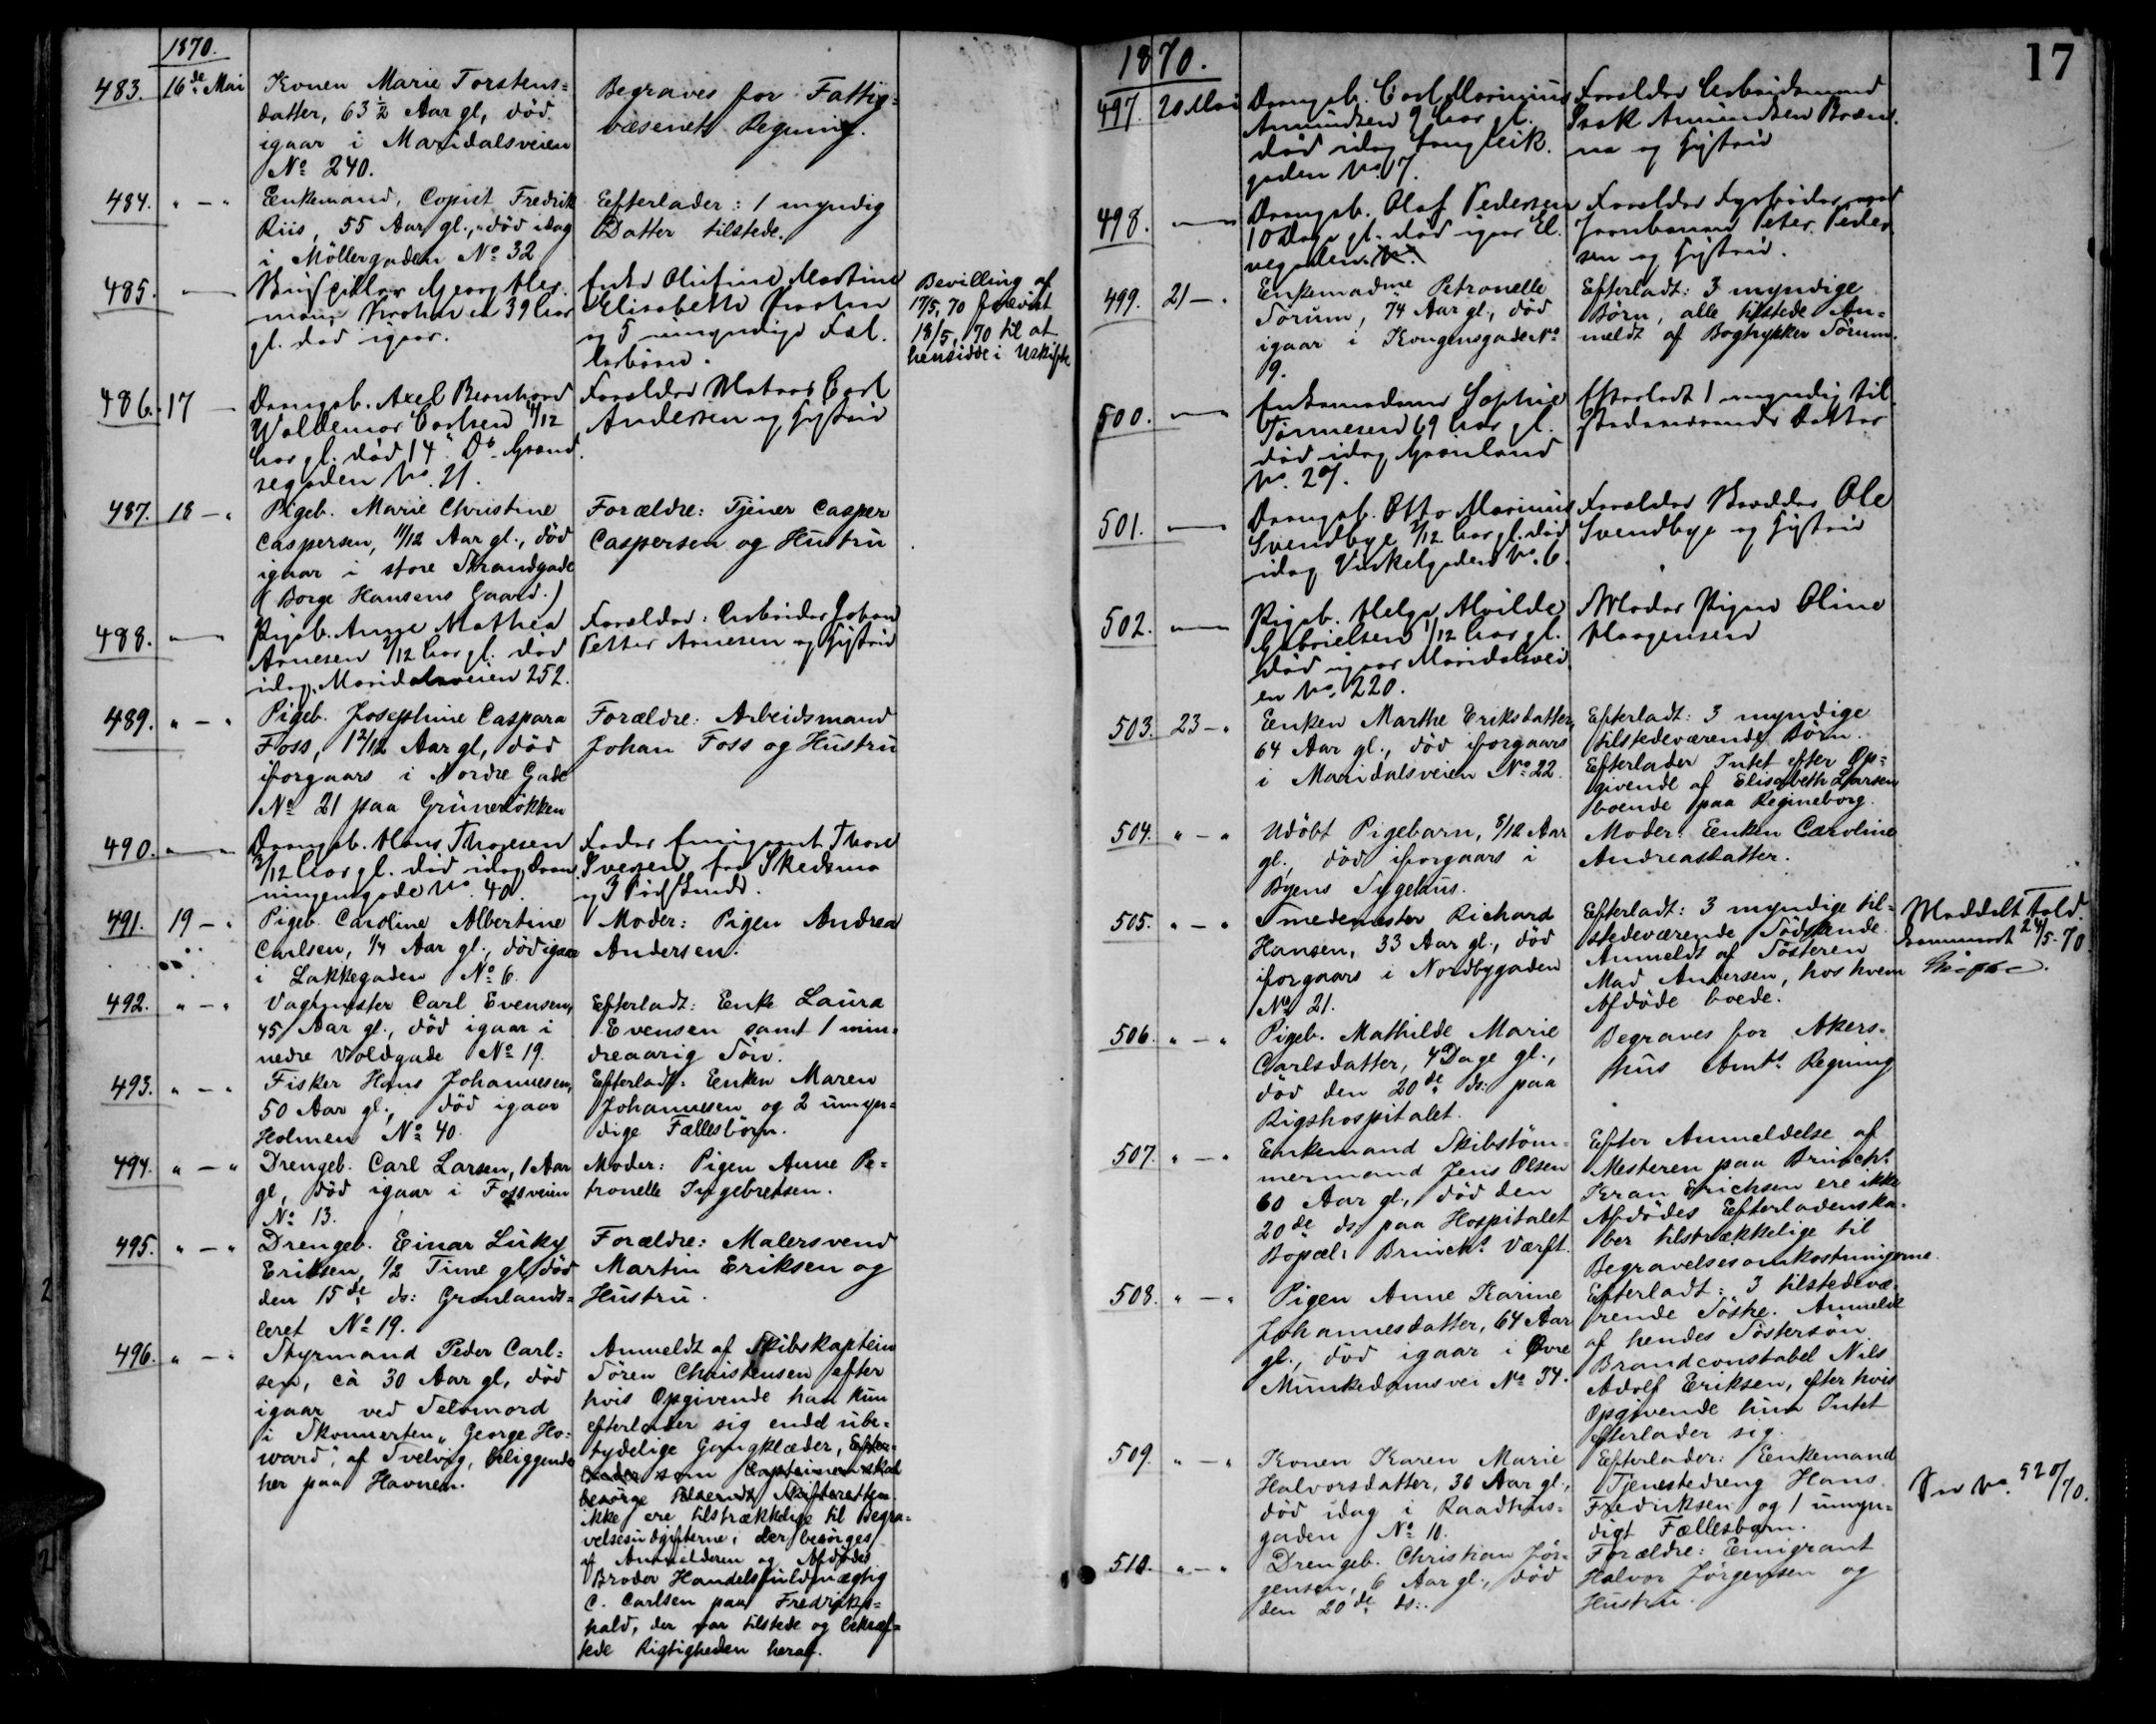 1870.
483. 16de Mai Konen Marie Torstens=
datter, 63 1/2 Aar gl, död
igaar i Maridalsveien
No 240.
Begraves for Fattig=
væsenets Regning.
484. " — " Enkemand, Copist Fredrik
Riis, 55 Aar gl., död idag
i Möllergaden No 32
Efterlader: 1 myndig
Datter tilstede.
485. — Georg Her
mann 39 Aar
gl. død igaar.
Enke Olufine Martine
Elisabeth
og 5 umyndige Fæl.
lesbørn.
Bevilling af
17/5, 70 forevist
18/5, 70 til at
hensidde i Uskifte
486. 17 — Drengeb. Axel Bernhard
Waldemar Carlsen 4/12
Aar gl. død 14. Ds. Grænd
segaden No. 21.
Forældre Matros Carl
Andersen og Hustru
487. 18 — " Pigeb. Marie Christine
Caspersen, 11/12 Aar gl., död
igaar i store Strandgade
(Borge Hansens Gaard.)
Forældre: Tjener Casper
Caspersen og Hustru
488. — Pigeb. Mathea
Arnesen /12 Aar gl. død
idag. Maridalsveien 252.
Forældre: Arbeider Johan
Petter Arnesen og Hustru
489. " — " Pigeb. Josephine Caspara
Foss, 1 2/12 Aar gl, död
iforgaars i Nordre Gade
No 21 paa Grünerlökken
Forældre: Arbeidsmand
Johan Foss og Hustru
490. — Drengeb. Hans Thoresen
/12 Aar gl. død idag Dron
ningensgade No 40.
Fader Emigrant Thore
Iversen fra Skedsmo
og 3 Sødskende.
491. 19 — " Pigeb. Caroline Albertine
Carlsen, 1/4 Aar gl., död igaar
i Lakkegaden No 6.
Moder: Pigen Andrea
Andersen.
492. " — " Vagtmester Carl Evensen,
45 Aar gl., död igaar i
nedre Voldgade No 19.
Efterladt: Enke Laura
Evensen samt 1 min=
dreaarig Sön.
493. " — " Fisker Hans Johannesen,
50 Aar gl., död igaar
Holmen No 40.
Efterladt: Enken Maren
Johannesen og 2 umyn=
dige Fællesbörn.
494. " — " Drengeb. Carl Larsen, 1 Aar
gl, död igaar i Fossveien
No 13.
Moder: Pigen Anne Pe=
tronelle Ingebretsen.
495. " — " Drengeb. Einar Luky
Eriksen, 1/2 Time gl, död
den 15de ds: Grønlands=
leret No 19.
Forældre: Malersvend
Martin Eriksen og
Hustru.
496. " — " Styrmand Peder Carl=
sen, cà 30 Aar gl, död
igaar ved Selvmord
i Skonnerten „George Ho=
ward", af Svelvig, beliggende
her paa Havnen.
Anmeldt af Skibskaptein
Sören Christensen efter
hvis Opgivende han kun
efterlader sig endel ube=
tydelige Gangklæder,
som Capteinen skal
besörge
ikke ere tilstrækkelige til Begra=
velsesudgifterne; der besörges
af Anmelderen og Afdödes
Broder Handelsfuldmægtig
C. Carlsen paa Fredriks=
hald, der var tilstede og bekræf=
tede Rigtigheden heraf.
17
1870.
497. 20 Mai Drengeb. Carl Marinius
Amundsen 9 Aar gl.
død idag
gaden No. 7.
Forældre Arbeidsmand
Isak Amundsen
og Hustru
498. — Drengeb. Olaf Pedersen
10 Dage gl. død igaar El.
vegaden
Forældre Fyrbøder ved
Jernbanen Peter Peder
sen og Hustru.
499. 21 — " Enkemadme Petronelle
Sörum, 74 Aar gl., död
igaar i Kongensgade No
9.
Efterladt: 3 myndige
Börn, alle tilstede An=
meldt af Bogtrykker Sörum.
500. — Enkemadame Sophie
Tønnesen 69 Aar gl.
død idag Grønland
No. 27.
Efterladt 1 myndig til
stedeværende Datter
501. — Drengeb. Otto Marinius
Svendbye /12 Aar gl. død
idag Vinkelgaden No. 6.
Forældre Ole
Svendbye og Hustru
502. — Pigeb. Helga Alvilde
Gabrielsen 1/12 Aar gl.
død igaar Maridalsvei
en No. 220.
Moder Pigen Oline
Haagensen
503. 23 — " Enken Marthe Eriksdatter,
64 Aar gl., död iforgaars
i Maridalsveien No 22.
Efterladt: 3 myndige
tilstedeværende Börn.
Efterlader Intet efter Op=
givende af Elisabeth Larsen
boende paa Regineborg.
504. " — " Udöbt Pigebarn, 8/12 Aar
gl., död iforgaars i
Byens Sygehus.
Moder: Enken Caroline
Andreasdatter.
505. " — " Smedemester Richard
Hansen, 33 Aar gl., död
iforgaars i Nordbygaden
No 21.
Efterladt: 3 myndige til=
stedeværende Södskende.
Anmeldt af Sösteren
Mad Andersen, hos hvem
Afdöde boede.
Meddelt
24/5. 70
506. " — " Pigeb. Mathilde Marie
Carlsdatter, 4 Dage gl.,
död den 20de ds: paa
Rigshospitalet.
Begraves for Akers=
hus Amts Regning
507. " — " Enkemand Skibstöm=
mermand Jens Olsen
60 Aar gl., död den
20de ds: paa Hospitalet
Bopæl: Brincks Værft.
Efter Anmeldelse af
Mesteren paa Brinchs
Kran Erichsen ere ikke
Afdödes Efterladenska=
ber tilstrækkelige til
Begravelsesomkostningerne.
508. " — " Pigen Anne Karine
Johannesdatter, 64 Aar
gl., död igaar i Øvre
Munkedamsvei No 34.
Efterladt: 3 tilstedevæ=
rende Söstre. Anmeldt
af hendes Söstersön
Brandconstabel Nils
Adolf Eriksen, efter hvis
Opgivende hun Intet
efterlader sig.
509. " — " Konen Karen Marie
Halvorsdatter, 30 Aar gl.,
död idag i Raadhus=
gaden No 10.
Efterlader: Enkemand
Tjenestedreng Hans
Fredriksen og 1 umyn=
digt Fællesbarn.
No. 527/70.
510. " — " Drengeb. Christian Jör=
gensen, 6 Aar gl., död
den 20de ds:.
Forældre: Emigrant
Halvor Jörgensen og
Hustru.